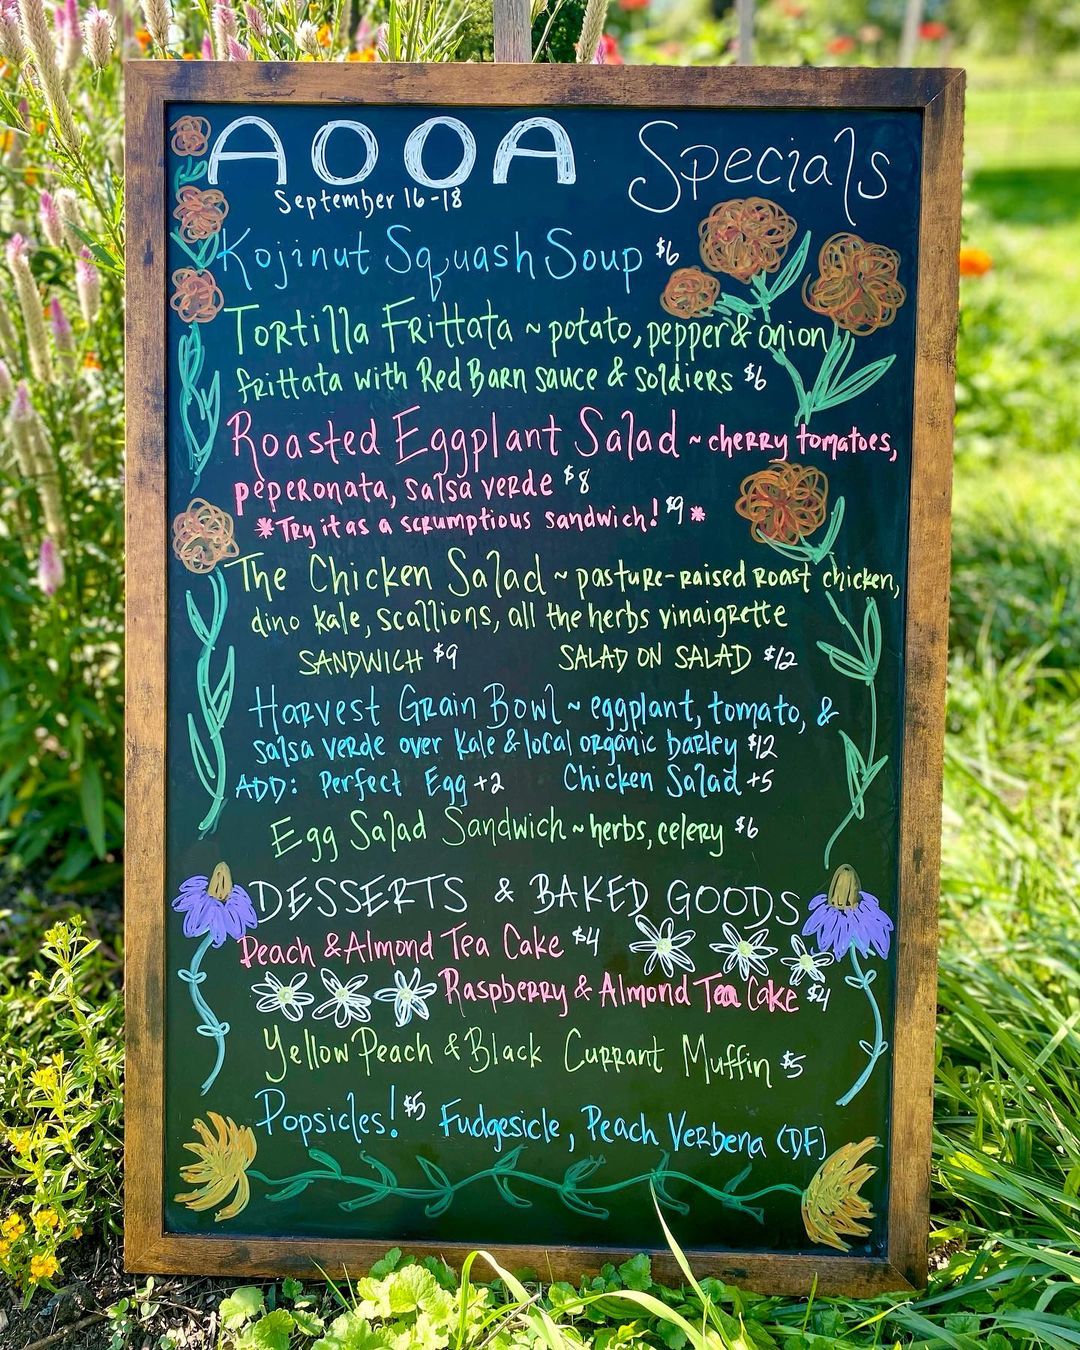 AOOA Specials
September 16-18
Kojinut Squash Soup $6
Tortilla Frittata ~ potato, pepper & onion
frittata with Red Barn sauce & soldiers $6
Roasted Eggplant Salad ~ cherry tomatoes,
peperonata, salsa verde $8
*Try it as a scrumptious sandwich! $9 *
The Chicken Salad ~ pasture-raised roast chicken,
dino kale, scallions, all the herbs vinaigrette
SANDWICH $9 SALAD ON SALAD $12
Harvest Grain Bowl ~ eggplant, tomato, &
salsa verde over kale & local organic barley $12
ADD: Perfect Egg +2 Chicken Salad +5
Egg Salad Sandwich ~ herbs, celery $6
DESSERTS & BAKED GOODS
Peach & Almond Tea Cake $4
Raspberry & Almond Tea Cake $4
Yellow Peach & Black Currant Muffin $5
Popsicles! $5 Fudgesicle, Peach Verbena (DF)